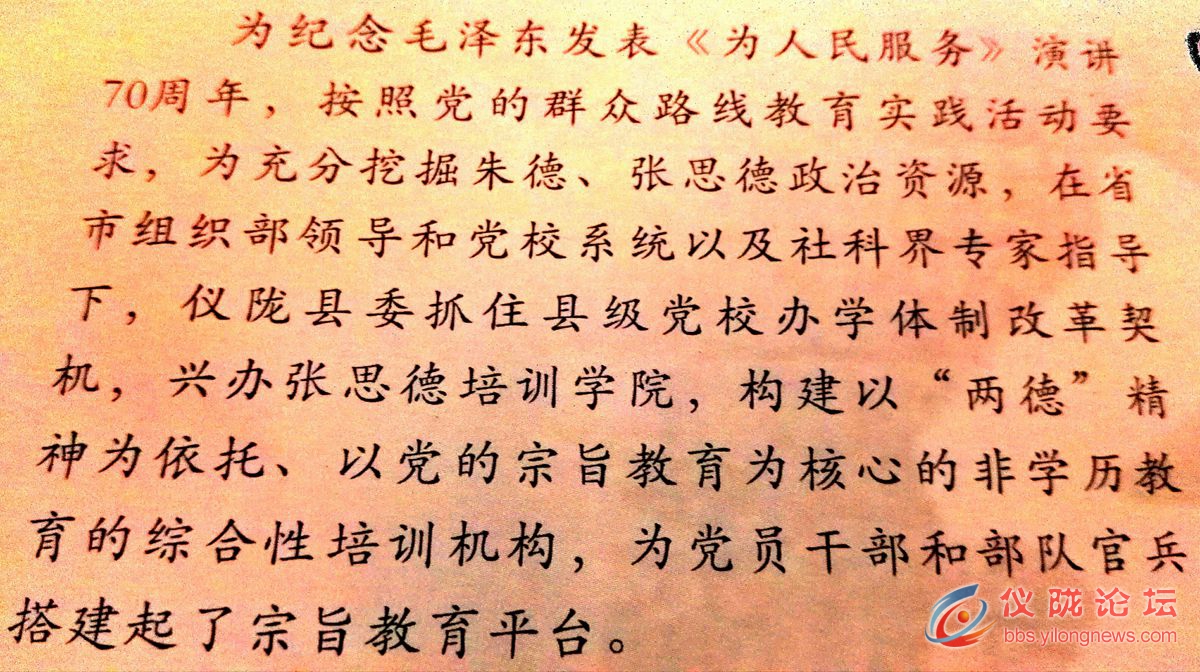 为纪念毛泽东发表《为人民服务》演讲
70周年，按照党的群众路线教育实践活动要
求，为充分挖掘朱德、张思德政治资源，在省
市组织部领导和党校系统以及社科界专家指导
下，仪陇县委抓住县级党校办学体制改革契
机，兴办张思德培训学院，构建以“两德”精
神为依托、以党的宗旨教育为核心的非学历教
育的综合性培训机构，为党员干部和部队官兵
搭建起了宗旨教育平台。
仪陇论坛
bbs.yilongnews.com